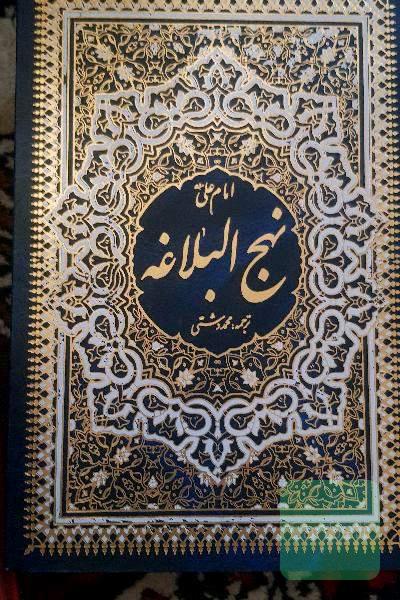 امام علی
نهج البلاغه
ترجمه: محمد دشتی